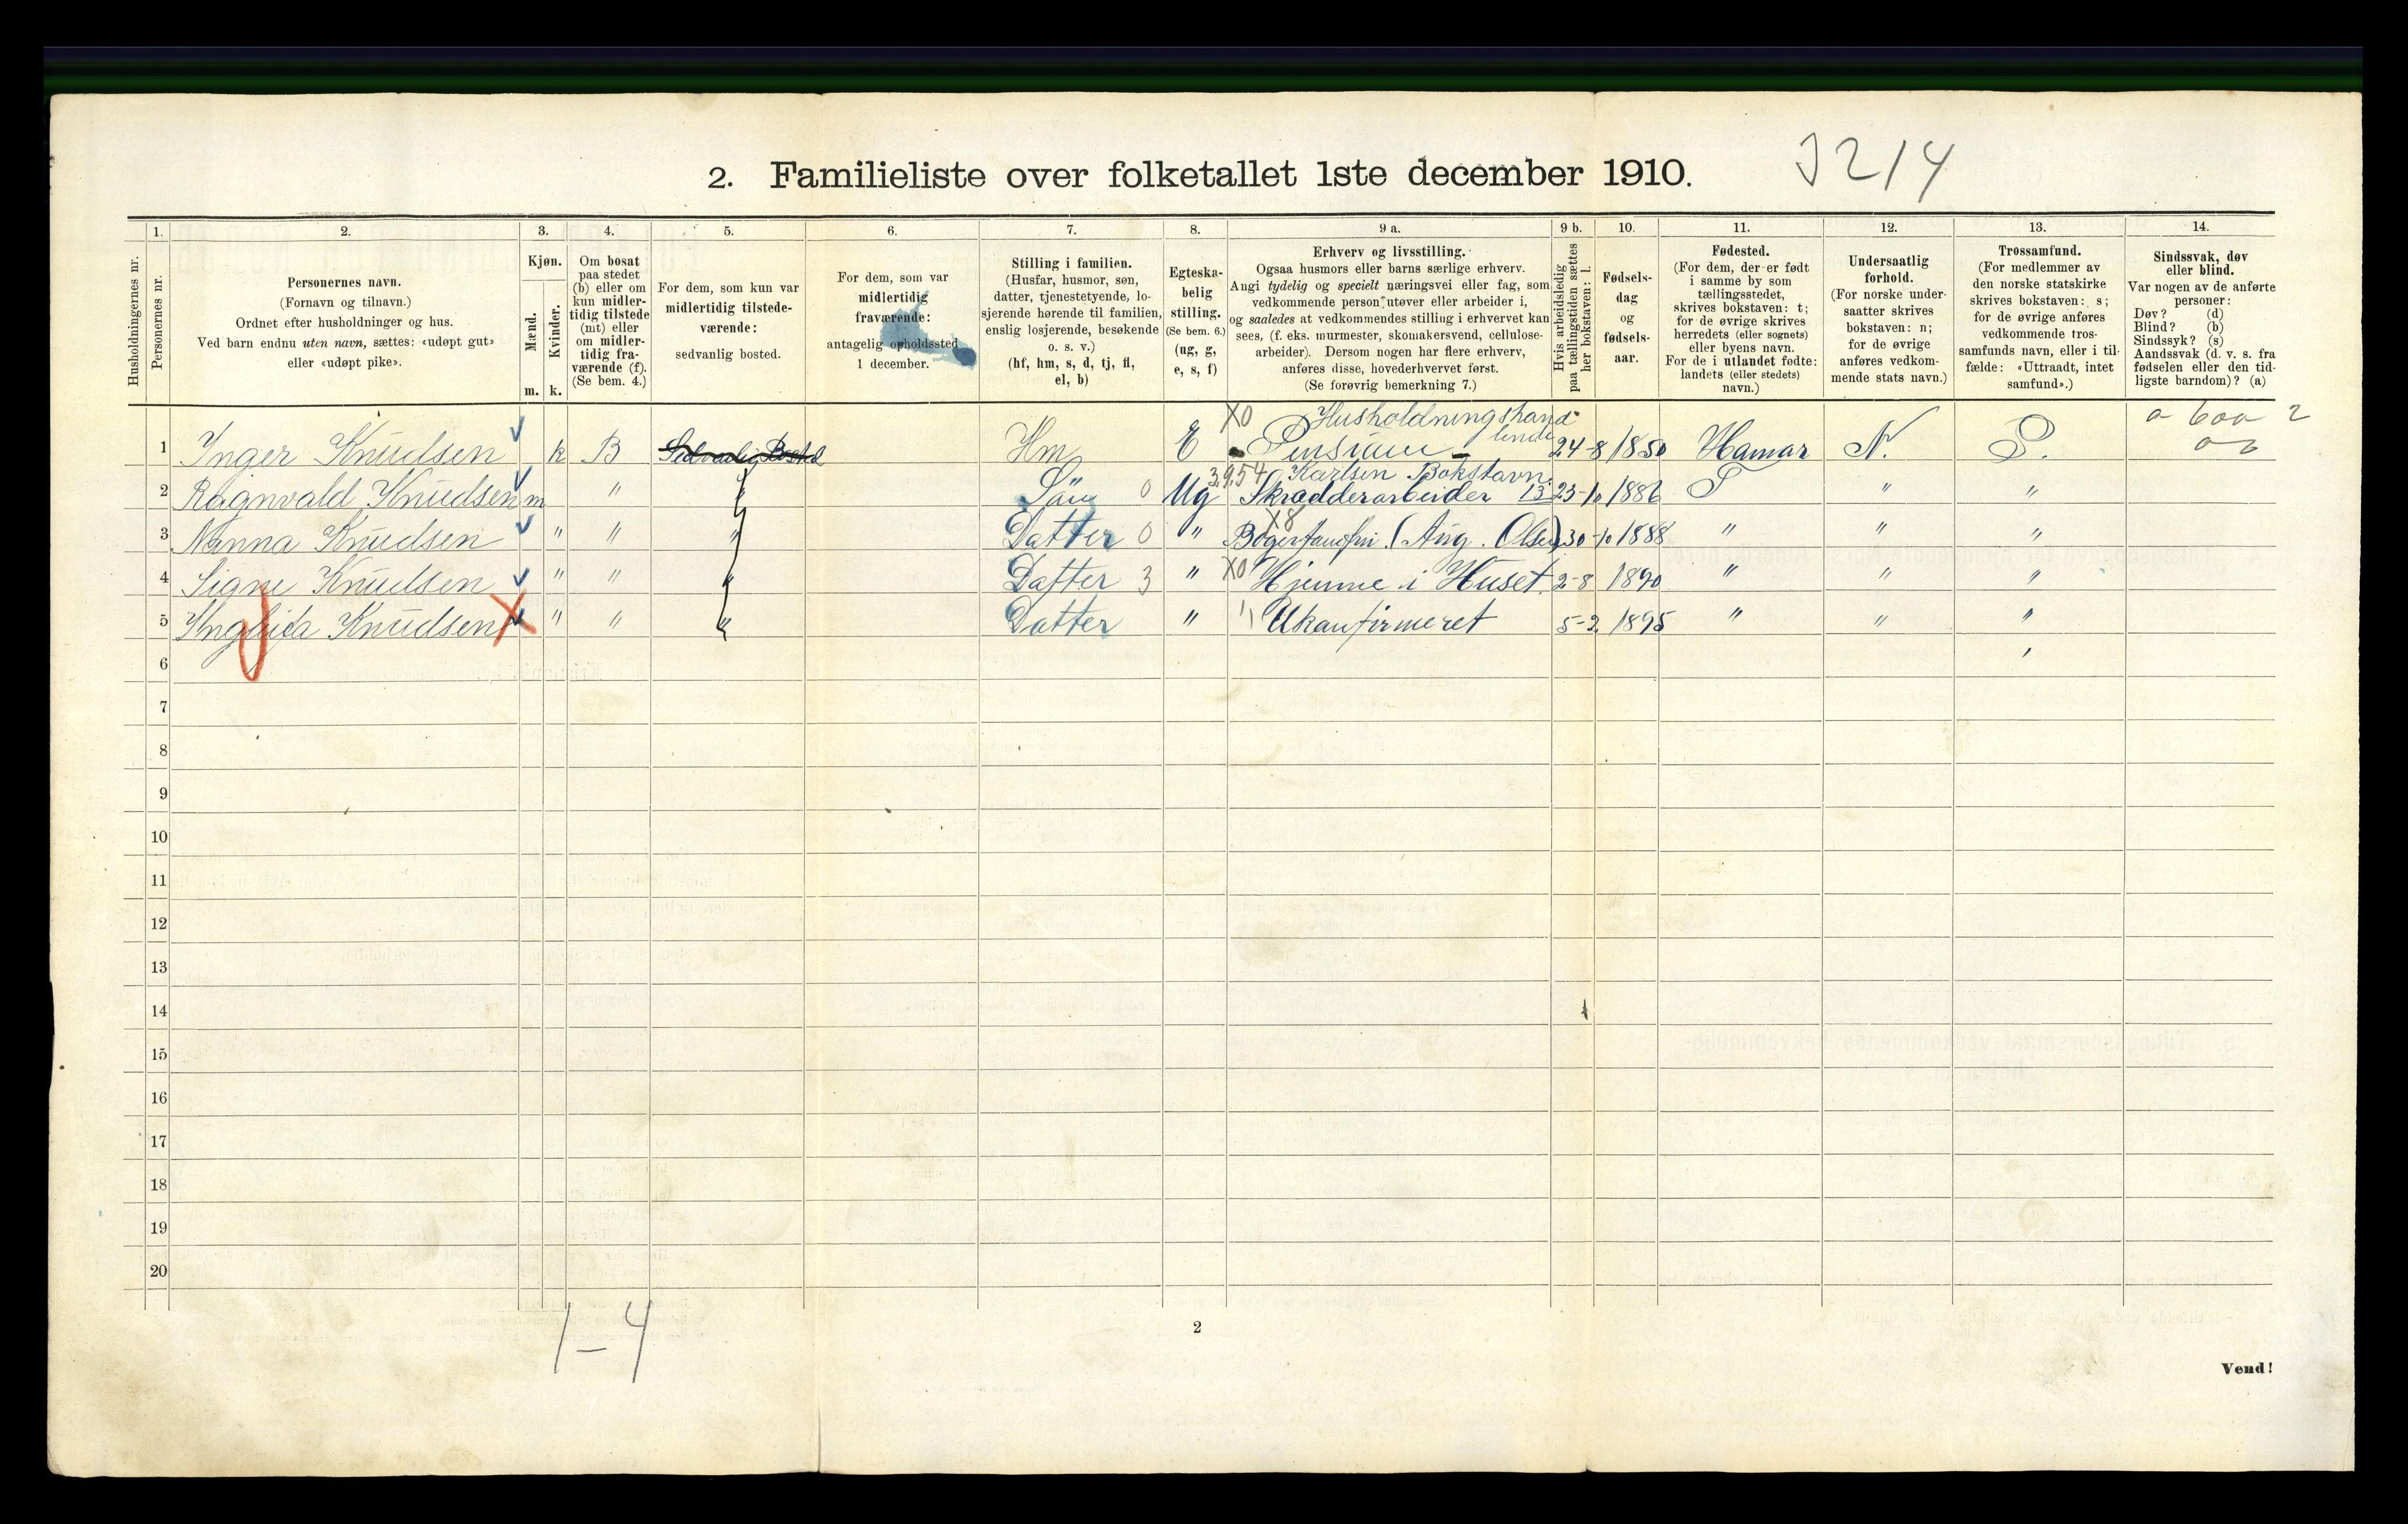 2. Familieliste over folketallet 1ste december 1910.
3214
Husholdningernes nr.
1.
Personernes nr.
2.
Personernes navn.
(Fornavn og tilnavn.)
Ordnet efter husholdninger og hus.
Ved barn endnu uten navn, sættes: «udøpt gut»
eller «udøpt pike».
3.
Kjøn.
Mænd.
Kvinder.
m. k.
4.
Om bosat
paa stedet
(b) eller om
kun midler-
tidig tilstede
(mt) eller
om midler-
tidig fra-
værende (f).
(Se bem. 4.)
5.
For dem, som kun var
midlertidig tilstede-
værende:
sedvanlig bosted.
6.
For dem, som var
midlertidig
fraværende:
antagelig opholdssted
1 december.
7.
Stilling i familien.
(Husfar, husmor, søn,
datter, tjenestetyende, lo-
sjerende hørende til familien,
enslig losjerende, besøkende
o. s. v.)
(hf, hm, s, d, tj, fl,
el, b)
8.
Egteska-
belig
stilling.
(Se bem. 6.)
(ug, g,
e, s, f)
9 a.
Erhverv og livsstilling.
Ogsaa husmors eller barns særlige erhverv.
Angi tydelig og specielt næringsvei eller fag, som
vedkommende person utøver eller arbeider i,
og saaledes at vedkommendes stilling i erhvervet kan
sees, (f. eks. murmester, skomakersvend, cellulose-
arbeider). Dersom nogen har flere erhverv,
anføres disse, hovederhvervet først.
(Se forøvrig bemerkning 7.)
9 b.
Hvis arbeidsledig
paa tællingstiden sættes
her bokstaven: l.
10.
Fødsels-
dag
og
fødsels-
aar.
11.
Fødested.
(For dem, der er født
i samme by som
tællingsstedet,
skrives bokstaven: t;
for de øvrige skrives
herredets (eller sognets)
eller byens navn.
For de i utlandet fødte:
landets (eller stedets)
navn.)
12.
Undersaatlig
forhold.
(For norske under-
saatter skrives
bokstaven: n;
for de øvrige
anføres vedkom-
mende stats navn.)
13.
Trossamfund.
(For medlemmer av
den norske statskirke
skrives bokstaven: s;
for de øvrige anføres
vedkommende tros-
samfunds navn, eller i til-
fælde: «Uttraadt, intet
samfund».)
14.
Sindssvak, døv
eller blind.
Var nogen av de anførte
personer:
Døv? (d)
Blind? (b)
Sindssyk? (s)
Aandssvak (d. v. s. fra
fødselen eller den tid-
ligste barndom)? (a)
X0 Husholdningshand
1 Inger Knudsen k B Sedvanlig Bosted Hm E Pensiam 24-8 1850 Hamar N. S.
3954 Karlsen Bokstavn
2 Ragnvald Knudsen m " " Sön 0 Ug Skrædderarbeider 13 23-10 1886 T " "
X8
3 Nanna Knudsen " " " Datter 0 " (Aug. Olsen) 30-10 1888 " " "
4 Signe Knudsen " " " Datter 3 " X0 Hjemme i Huset 2-8 1890 " " "
5 Knudsen " " " Datter " Ukonfirmeret 5-2 1895 " " "
6
7
8
9
10
11
12
13
14
15
16
17
18
19
20
1-4
2
Vend!